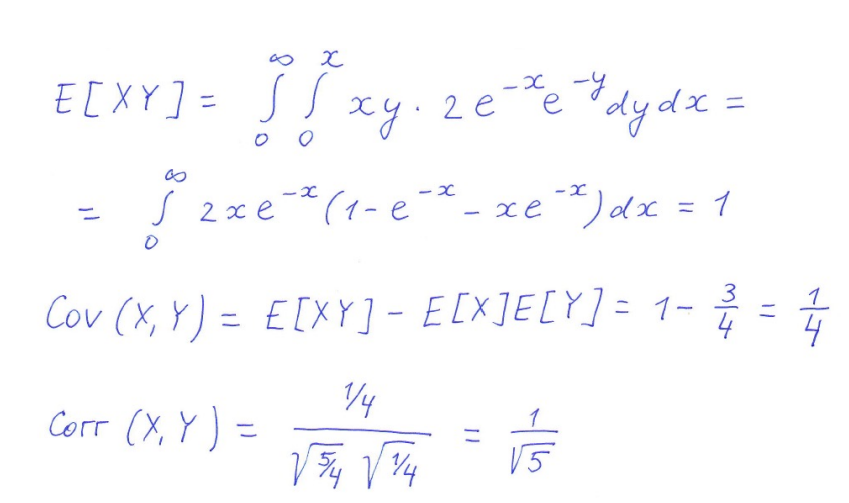 E[XY] = ∫₀^∞ ∫₀^x xy · 2e^{-x}e^{-y}dydx =
= ∫₀^∞ 2xe^{-x}(1-e^{-x} - xe^{-x})dx = 1
Cov(X,Y) = E[XY] - E[X]E[Y] = 1 - 3/4 = 1/4
Corr(X,Y) = (1/4)/(√(5/4) √(1/4)) = 1/√5